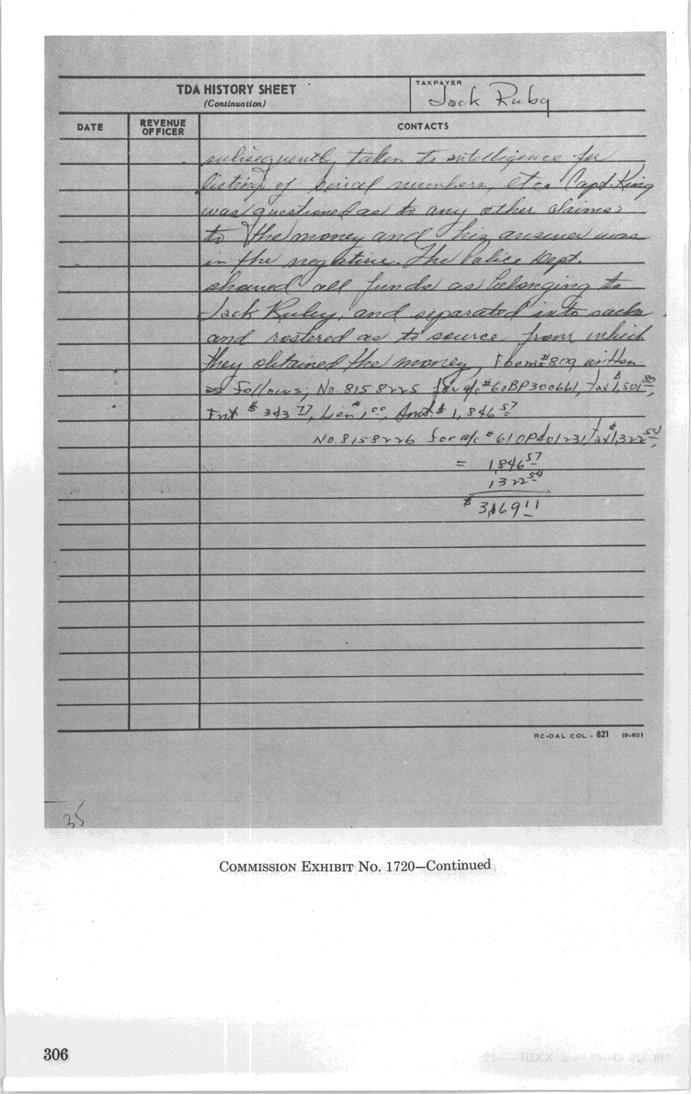 TDA HISTORY SHEET
(Continuation)
TAXPAYER
Jack Ruby
DATE
REVENUE OFFICER
CONTACTS
subsequently taken to intelligence for
listing of serial numbers, etc. Capt. King
was questioned as to any other claims
to the money and his answer was
in the negative. The Police Dept.
shared all funds as belonging to
Jack Ruby, and separated into sacks
and rostered as to source from which
they obtained the money. Form #809 written
as follows; No. 8158225 for a/c #60BP300661, tax $1,501.80,
Int $343.77, Lien 1.00, Amt $1,846.57
No. 8158226 for a/c #61 tax $1,322.54
= 1,846.57
1322.54
$3,169.11
RC-DAL COL. 821 (9-60)
35
COMMISSION EXHIBIT No. 1720—Continued
306